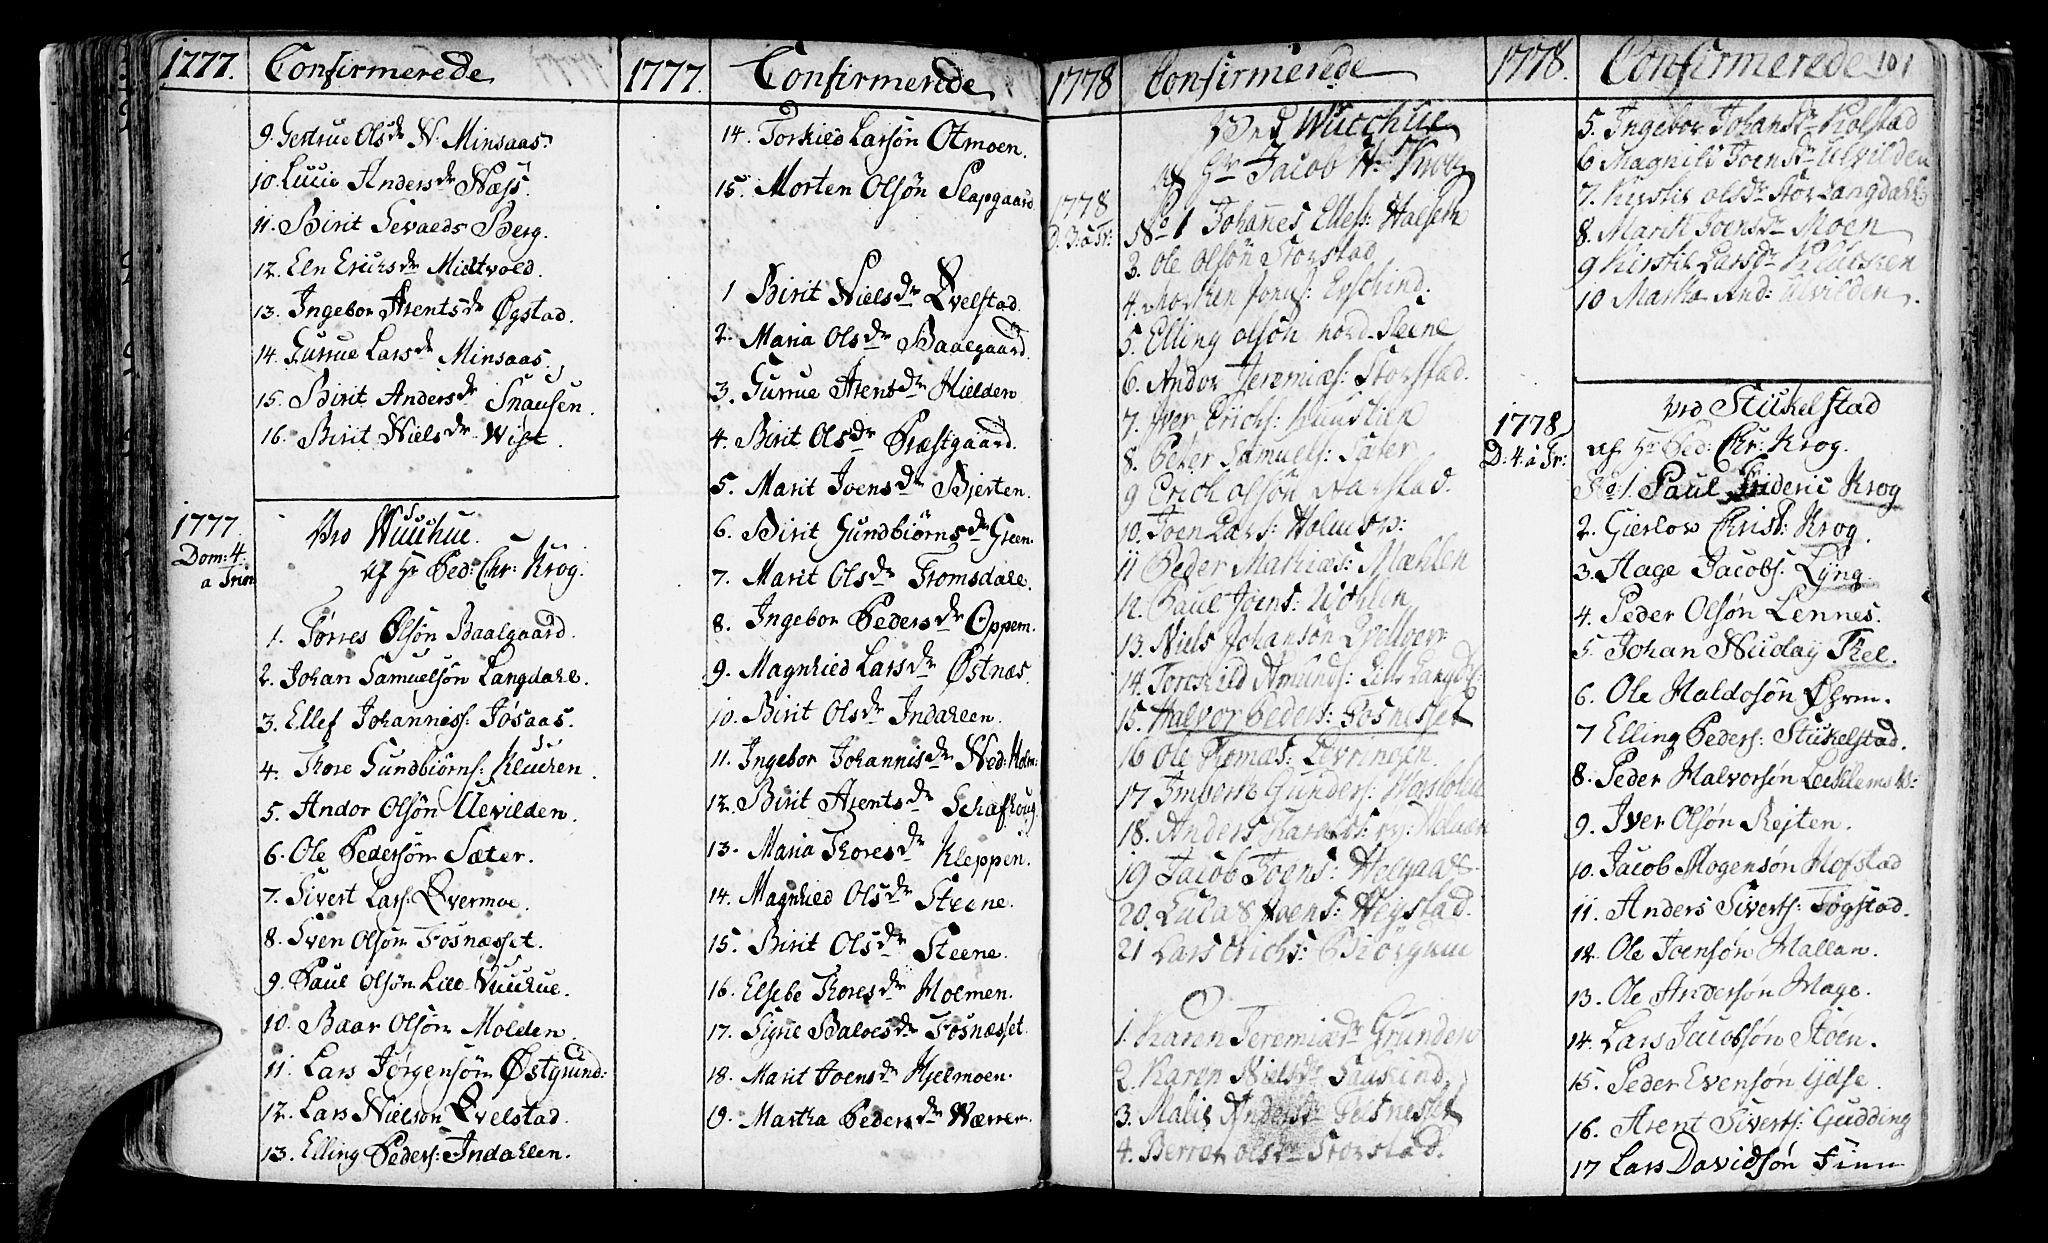 1777. Confirmerede
9. Gertrue Olsdr N. Minsaas
10. Lucie Andersdr Næss.
11. Birit Sevaldsdr Berg.
12. Eln Erichsdr Midtvold.
13. Ingebor Arentsdr Øgstad.
14. Gurrue Larsdr Minsaas.
15. Birit Andersdr Snausen.
16. Birit Nielsdr Wist.
1777.
Dom: 4.
a Trin
Ved Wuchue.
af Hr Ped: Chr: Krog.
1. Tørres Olsøn Baalgaard.
2. Johan Samuelsøn Langdahl.
3. Ellef Johanness: Jøsaas.
4. Thore Gundbiørns: Kluchen.
5. Andor Olsøn Ulvilden.
6. Ole Pedersøn Sæter.
7. Sivert Lars: Øvermoe.
8. Sven Olsøn Fosnæsset.
9. Paul Olsøn Lill-Vuchue.
10. Baar Olsøn Molden
11. Lars Jørgensøn Østgrund:
12. Lars Nielsøn Qvelstad.
13. Elling Peders: Indahlen.
1777. Confirmerede
14. Torkied Larsøn Otmoen.
15. Morten Olsøn Slapgaard
1 Birit Nielsdr Qvelstad.
2. Maria Olsdr Baalgaard.
3. Gurrue Arentsdr Hielden
4. Birit Olsdr Præstgaard.
5. Marit Joensdr Bjerten.
6. Birit Gundbiørnsdr Green.
7. Marit Olsdr Tromsdahl.
8. Ingebor Pedersdr Oppem.
9. Magnhild Larsdr Østnæs.
10. Birit Olsdr Indahlen.
11. Ingebor Johannisdr Ned: Holm:
12. Birit Arentsdr Schafhoug
13. Maria Thoresdr Kleppen.
14. Magnhild Olsdr Steene.
15. Birit Olsdr Steene.
16. Elsebe Thoresdr Holmen.
17. Sigrie Baloesdr Fosnæsset.
18. Marit Joensdr Hjelmoen.
19. Martha Pedersdr Wærrer.
1778 Confirmerede
Ved Wucchue
af Hr Jacob Hr Krog
1778
D. 3. a Tr:
No 1 Johannes Ellefs: Halseth
3. Ole Olsøn Storstad
4. Morten Jonus:
5. Elling Olsøn nord-Steene
6. Andor Jeremiæs: Storstad.
7. Iver Erichs:
8. Peter Samuels: Sæter
9 Erich Olsøn Aarstad.
10. Joen Lars: Holmsv:
11 Peder Mathias: Mæhlen
12. Paul Joens:
13. Niels Johansøn Qvelloer
14. Toreskild Amunds: Lill Langd:
15. Halvor Peders: Fosnesset
16 Ole Thomæs: Levringen
17 Imbert Gunders:
18. Anders Haralds:
19 Jacob Joens: Helgaas
20. Lucas Joens: Hegstad.
21 Lars Erichs:
1. Karen Jeremiadr Grunden
2. Karen Nielsdr
3. Malis Andersdr Fosnesset
4. Berret Olsdr Storstad.
1778. Confirmerede 101
5. Ingebor Johansdr Kolstad
6 Magnild Joensdr Ulvilden
7. Kirstie Olsdr Stor Langdahl
8. Marit Joensdr Moen
9 Kirstie Larsdr Klucken
10 Martha And: Ulvilden.
1778
D: 4. a Tr:
Ved Stikelstad
af Hr Ped: Chr: Krog.
No 1. Paul Frideric Krog
2. Gierlow Christ: Krog.
3. Hage Jacobs: Lyng.
4. Peder Olsøn Lennes.
5. Johan Nuday Thel.
6. Ole Haldosøn Øhrn.
7 Elling Peders: Stikelstad.
8. Peder Halvorsøn
9. Iver Olsøn Rejten.
10. Jacob Mogensøn Hofstad
11. Anders Siverts: Fogstad.
12. Ole Joensøn Hallan.
13. Ole Andersøn Hage.
14. Lars Jacobsøn Støen.
15. Peder Evensøn Ydse.
16. Arent Siverts: Gudding
17 Lars Davidsøn Finn